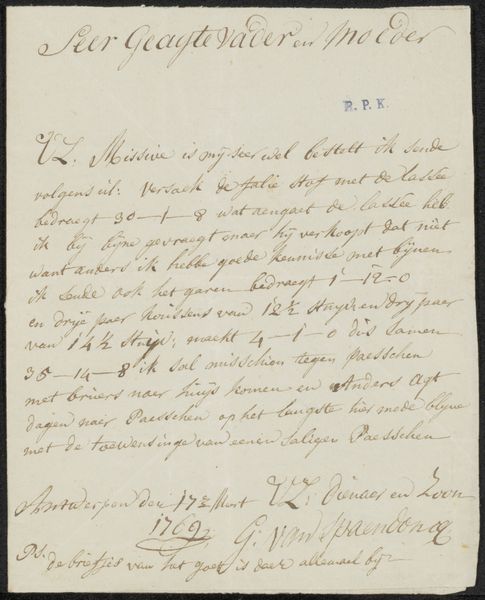 Seer Geagte Vader en Moeder
R.P.K.
VL. Missive is mij seer wel bestelt ik sende
volgens ul: versoek de falie stof met de lassée
bedraegt 30-1-8 wat aengaet de lassée heb
ik bij bijne gevraegt maer hij verkoopt dat niet
want anders ik hebbe goede kennisse met bijnen
ik sende ook het garen bedraegt 1-12-0
en drije paer koussens van 12½ Stuyv en drij paer
van 14½ Stuyv: maekt 4-1-0 dis samen
35-14-8 ik sal misschien tegen Paesschen
met briers naer huijs komen en Anders Agt
dagen naer Paesschen op het langste hier mede blyve
met de toewensinge van eenen saligen Paesschen
Antwerpen den 17 Mert VL: dienaer en Zoon
1769 G: van Spaendonck
Ps. de briefjes van hut goet is daer allemael bij